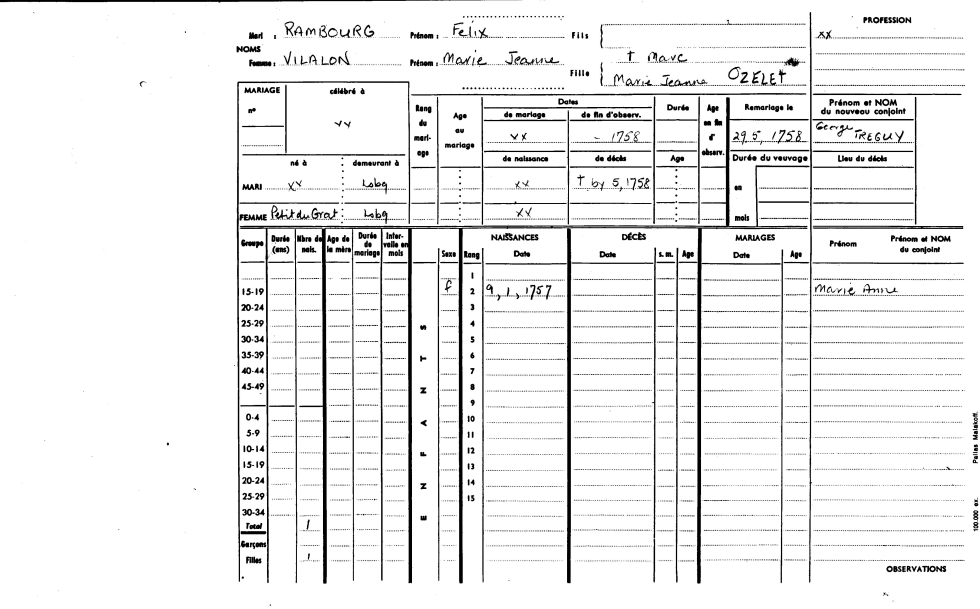 PROFESSION
Mari : RAMBOURG Prénom : Felix Fils xx
NOMS
Femme : VILALON Prénom : Marie Jeanne Fille † Marc
Marie Jeanne OZELET
MARIAGE célébré à Rang du mari- age Age au mariage Dates Durée Age en fin d' observ. Remariage le Prénom et NOM du nouveau conjoint
n° de mariage de fin d'observ.
xx xx - 1758 29 5, 1758 George TREGUY
né à demeurant à de naissance de décès Age Durée du veuvage Lieu du décès
MARI xx Lobg xx † by 5, 1758 en
FEMME Petit du Grat Lobg xx mois
Groupe Durée (ans) Nbre de nais. Age de la mère Durée de mariage Inter- valle en mois Sexe Rang NAISSANCES Date DÉCÈS Date s. m. Age MARIAGES Date Age Prénom Prénom et NOM du conjoint
1
15-19 f 2 9, 1, 1757 Marie Anne
20-24 3
25-29 S 4
30-34 5
35-39 T 6
40-44 7
45-49 N 8
9
0-4 A 10
5-9 11
10-14 F 12
15-19 13
20-24 N 14
25-29 15
30-34 E
Total 1
Garçons
Filles 1
OBSERVATIONS
100.000 ex. Pallas Malakoff.